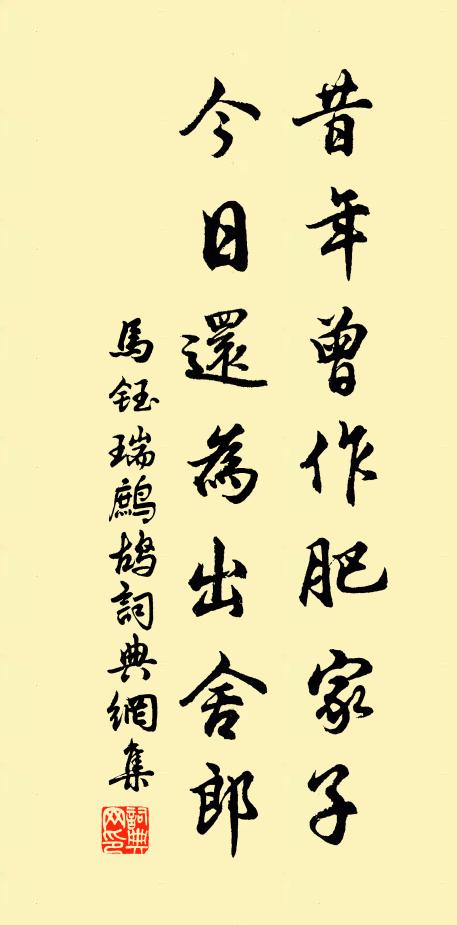 昔年曾作肥家子
今日還為出舍郎
馬鈺瑞鷓鴣詞典網集
詞典网印